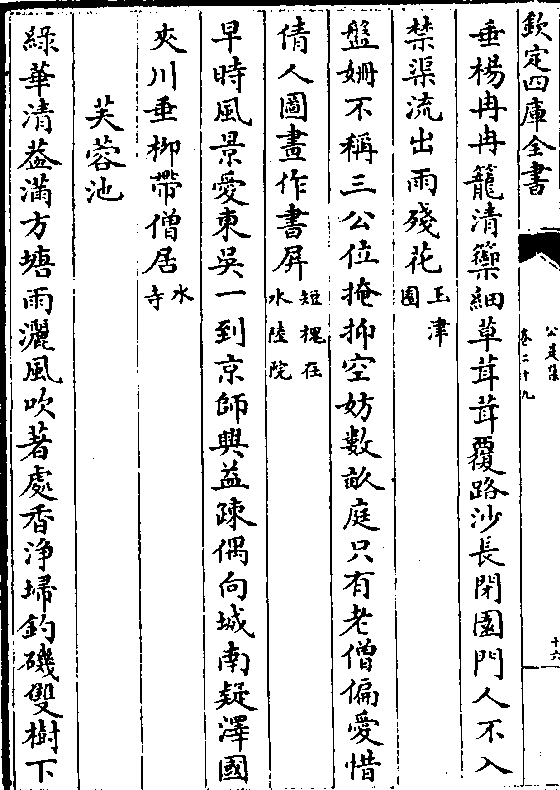 欽定四庫全書
公是集
卷二十九
十六
垂楊冉冉籠清籞細草茸茸覆路沙長閉園門人不入
禁渠流出雨殘花玉津園
盤姍不稱三公位掩抑空妨數畝庭只有老僧偏愛惜
倩人圖畫作書屏短槐在水陸院
早時風景愛東吳一到京師興益疎偶向城南疑澤國
夾川垂柳帶僧居水寺
芙蓉池
綠華清葢滿方塘雨灑風吹著處香浄埽釣磯雙樹下